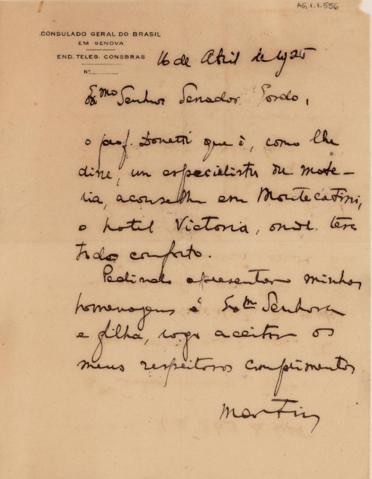 AG.1.1.556
CONSULADO GERAL DO BRASIL
EM GENOVA
END. TELEG. CONSBRAS
Nº
16 de Abril de 1925
Exmo Senhor Senador Gordo,
o prof. Donetti que é, como lhe
disse, um especialista da mate-
ria, aconselha em Montecatini,
o hotel Victoria, onde terá
todo conforto.
Pedindo apresentar minhas
homenagens á Exma Senhora
e filha, rogo aceitar os
meus respeitosos cumprimentos
Martins